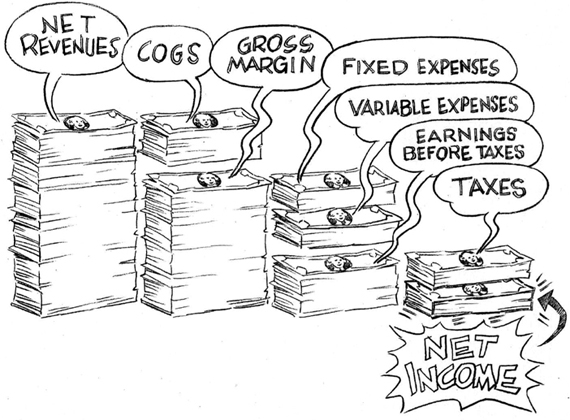 NET
REVENUES
COGS
GROSS
MARGIN
FIXED EXPENSES
VARIABLE EXPENSES
EARNINGS
BEFORE TAXES
TAXES
NET
INCOME